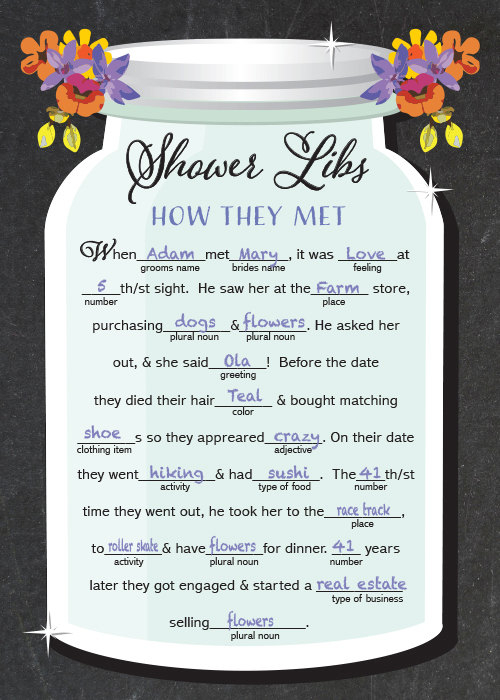 Shower Libs
HOW THEY MET
When Adam met Mary, it was Love at
grooms name brides name feeling
5 th/st sight. He saw her at the Farm store,
number place
purchasing dogs & flowers. He asked her
plural noun plural noun
out, & she said Ola! Before the date
greeting
they died their hair Teal & bought matching
color
shoe s so they appreared crazy. On their date
clothing item adjective
they went hiking & had sushi. The 41 th/st
activity type of food number
time they went out, he took her to the race track,
place
to roller skate & have flowers for dinner. 41 years
activity plural noun number
later they got engaged & started a real estate
type of business
selling flowers.
plural noun